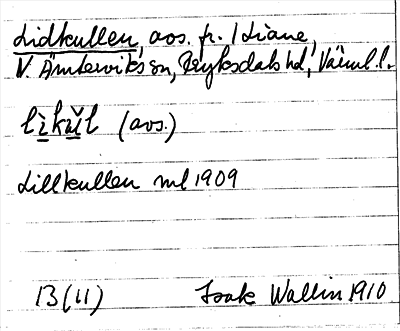 Lidkullen, avs. fr. 1 Liane,
V. Ämterviks sn, Fryksdals hd, Värml. l.
lìkul (avs.)
Lillkullen ml 1909
13 (11) Isak Wallin 1910